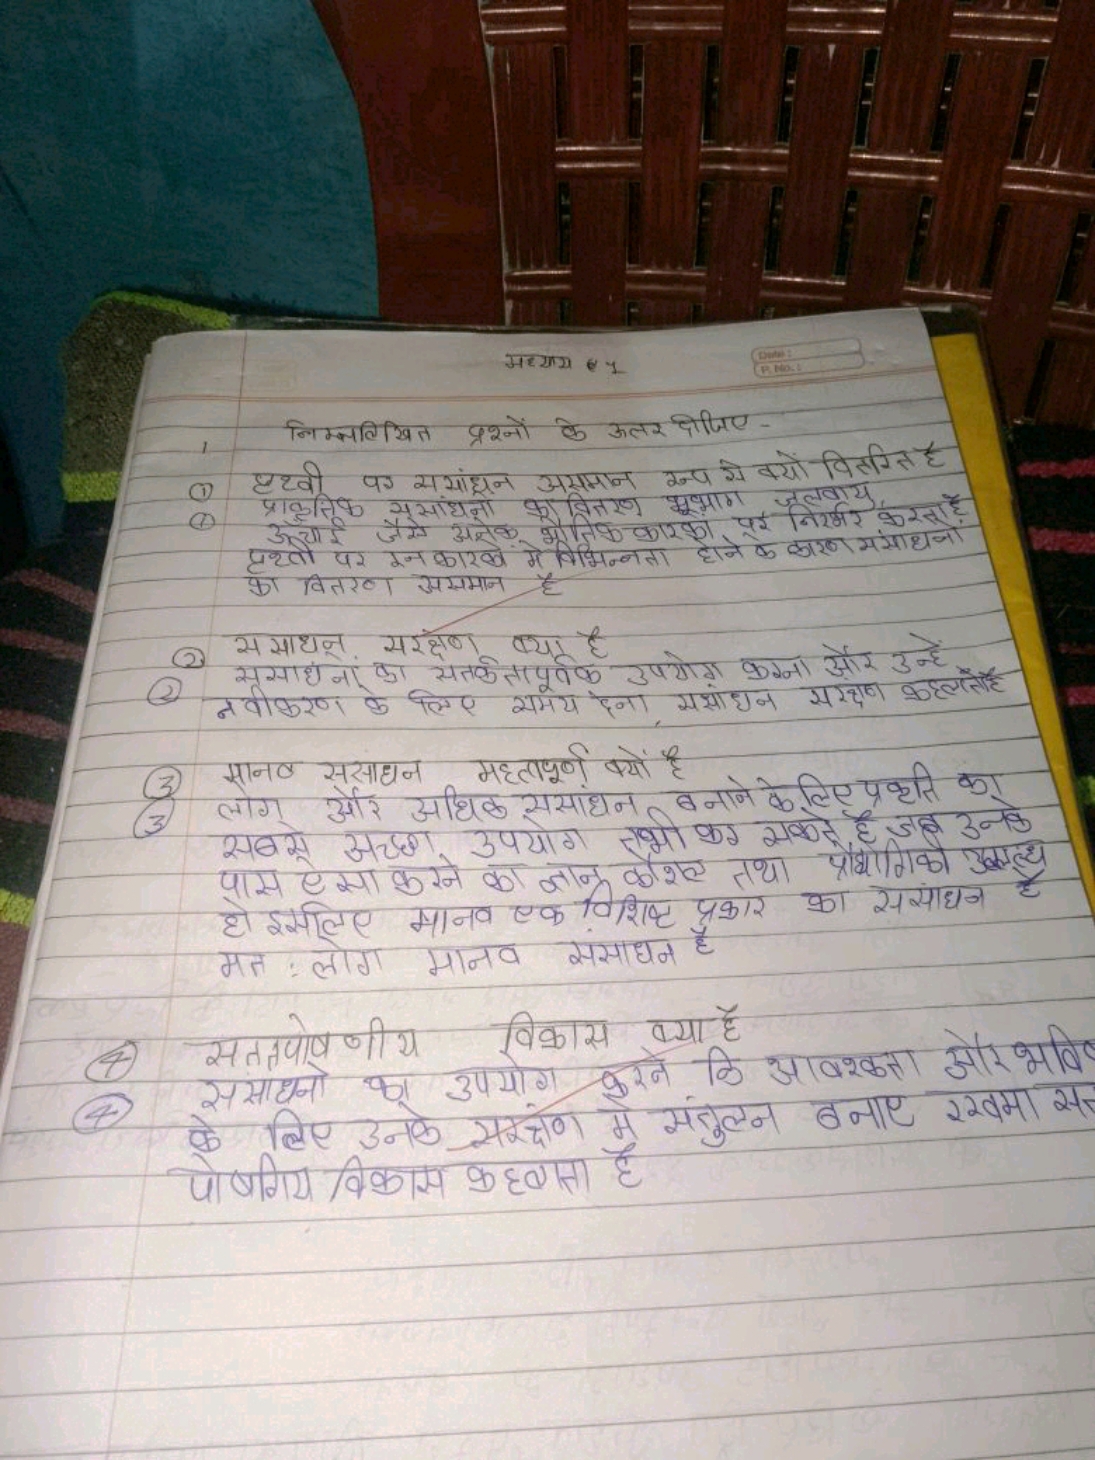 अध्याय 1
Date :
P. No. :
1 निम्नलिखित प्रश्नों के ऊत्तर दीजिए -
① पृथ्वी पर ससांधन असमान रूप से क्यों वितरित है
① प्राकृतिक ससांधनो का वितरण भूभाग जलवायु
ऊँचाई जैसे अनेक भौतिक कारको पर निर्भर करता है
पृथ्वी पर इन कारको में विभिन्नता होने के कारण ससाधनो
का वितरण असमान है
② ससाधन सरंक्षण क्या है
② ससाधनो का सतर्कतापूर्वक उपयोग करना और उन्हें
नवीकरण के लिए समय देना ससांधन सरंक्षण कहलाता है
③ मानव ससाधन महत्वपूर्ण क्यों है
③ लोग और अधिक ससांधन बनाने के लिए प्रकृति का
सबसे अच्छा उपयोग तभी कर सकते है जब उनके
पास एसा करने का ज्ञान कौशल तथा प्रौद्योगिकी
हो इसलिए मानव एक विशिष्ट प्रकार का ससांधन है
अत : लोग मानव संसाधन है
④ सततपोषणीय विकास क्या है
④ ससाधनो का उपयोग करने कि आवश्कता और भवि
के लिए उनके सरंक्षण में संतुलन बनाए रखना सत
पोषणिय विकास कहलाता है